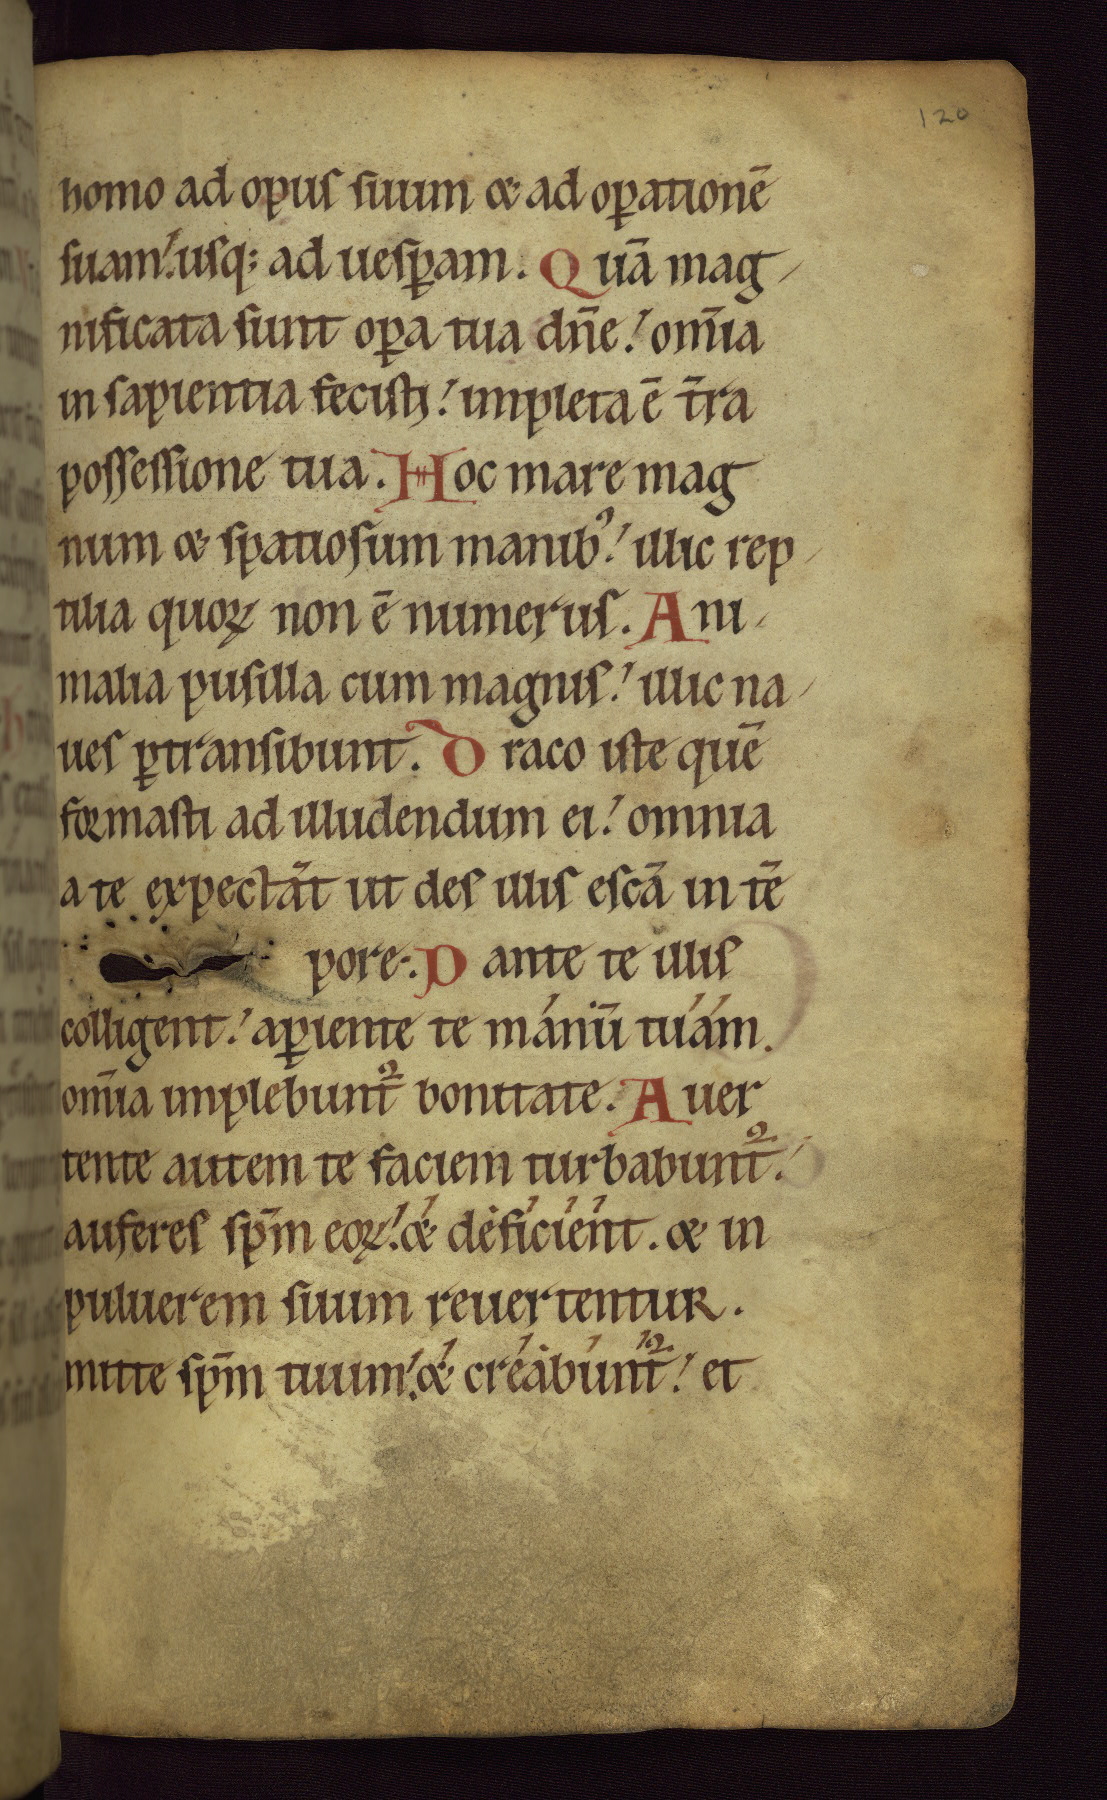 120
homo ad opus suum & ad op̱ationē
suam.' usq; ad uesp̱am. Quā mag-
nificata sunt op̱a tua dn̄e.' om̄ia
in sapientia fecisti.' impleta ē t̄ra
possessione tua. Hoc mare mag
num & spatiosum manibꝰ.' illic rep-
tilia quoꝝ non ē numerus. Ani-
malia pusilla cum magnis.' illic na-
ues p̱transibunt. Draco iste quē
foꝛmasti ad illudendum ei.' omnia
a te expectāt ut des illis escā in tē
pore. Dante te illis
colligent.' ap̱iente te mánū tuám.
om̄ia implebunt᷑ bonitate. Auer
tente autem te faciem turbabunt᷑.'
auferes sp̄m eoꝝ.' &́ déficíént. & in
puluerem suum reuertentur.
mitte sp̄m tuum.' &́ creábúnt᷑.' et